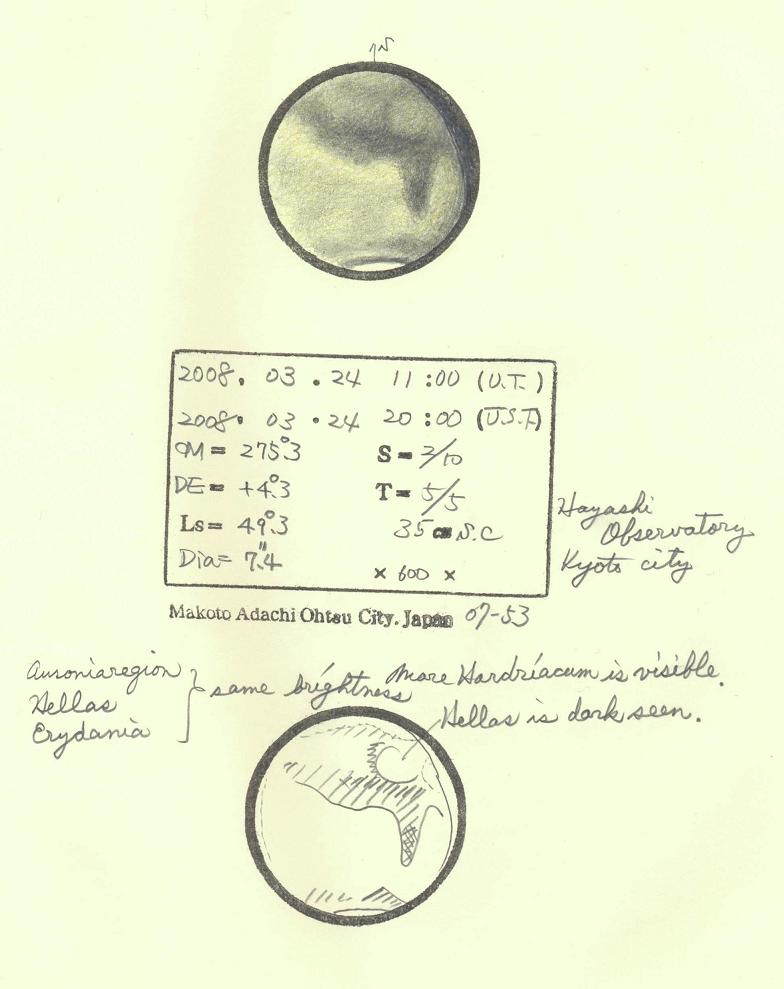 N
2008. 03 . 24 11:00 (U.T.)
2008. 03 . 24 20:00 (J.S.T)
ωM = 275°.3 S = 2/10
DE = +4°.3 T = 5/5
Ls = 49°.3 35 cm S.C
Dia = 7".4 × 600 ×
Hayashi
Observatory
Kyoto city
Makoto Adachi Ohtsu City. Japan 07-53
Ausoniaregion
Hellas
Erydania
same brightness
More Hardriacum is visible.
Hellas is dark seen.